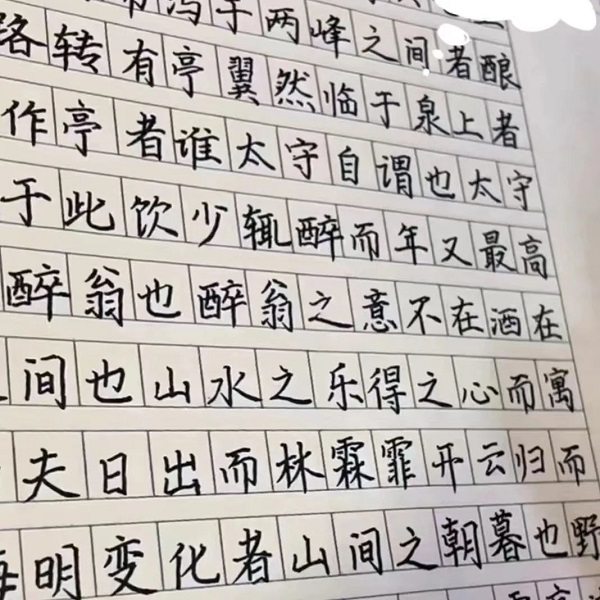 泻于两峰之间者酿
路转有亭翼然临于泉上者
作亭者谁太守自谓也太守
于此饮少辄醉而年又最高
醉翁也醉翁之意不在洒在
间也山水之乐得之心而寓
夫日出而林霖霏开云归而
明变化者山间之朝暮也野